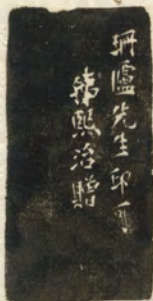 珊廬先生印可
韓熙治贈